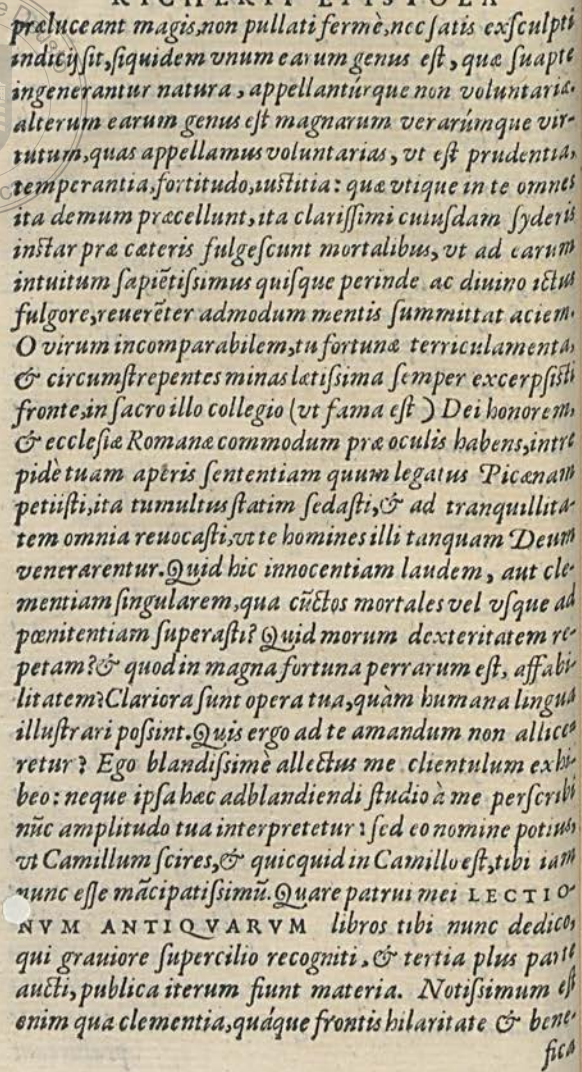 RICHERII EPISTOLA
præluceant magis, non pullati fermè, nec satis exsculpti
indicij sit, siquidem vnum earum genus est, quæ suapte
ingenerantur natura, appellantúrque non voluntariæ.
alterum earum genus est magnarum verarúmque vir-
tutum, quas appellamus voluntarias, vt est prudentia,
temperantia, fortitudo, iustitia: quæ vtique in te omnes
ita demum præcellunt, ita clarissimi cuiusdam syderis
instar præ cæteris fulgescunt mortalibus, vt ad earum
intuitum sapiẽtissimus quisque perinde ac diuino ictus
fulgore, reuerẽter admodum mentis summittat aciem.
O virum incomparabilem, tu fortunæ terriculamenta,
& circumstrepentes minas lætissima semper excerpsisti
fronte, in sacro illo collegio (vt fama est) Dei honorem,
& ecclesiæ Romanæ commodum præ oculis habens, intre
pidè tuam aperis sententiam quum legatus Picænam
petiisti, ita tumultus statim sedasti, & ad tranquillita-
tem omnia reuocasti, vt te homines illi tanquam Deum
venerarentur. Quid hic innocentiam laudem, aut cle-
mentiam singularem, qua cũctos mortales vel vsque ad
pœnitentiam superasti? Quid morum dexteritatem re-
petam? & quod in magna fortuna perrarum est, affabi-
litatem? Clariora sunt opera tua, quàm humana lingua
illustrari possint. Quis ergo ad te amandum non allice-
retur? Ego blandissimè allectus me clientulum exhi-
beo: neque ipsa hæc adblandiendi studio à me perscribi
nũc amplitudo tua interpretetur: sed eo nomine potius,
vt Camillum scires, & quicquid in Camillo est, tibi iam
nunc esse mãcipatissimũ. Quare patrui mei LECTIO-
NVM ANTIQVARVM libros tibi nunc dedico,
qui grauiore supercilio recogniti, & tertia plus parte
aucti, publica iterum fiunt materia. Notissimum est
enim qua clementia, quáque frontis hilaritate & bene-
fica